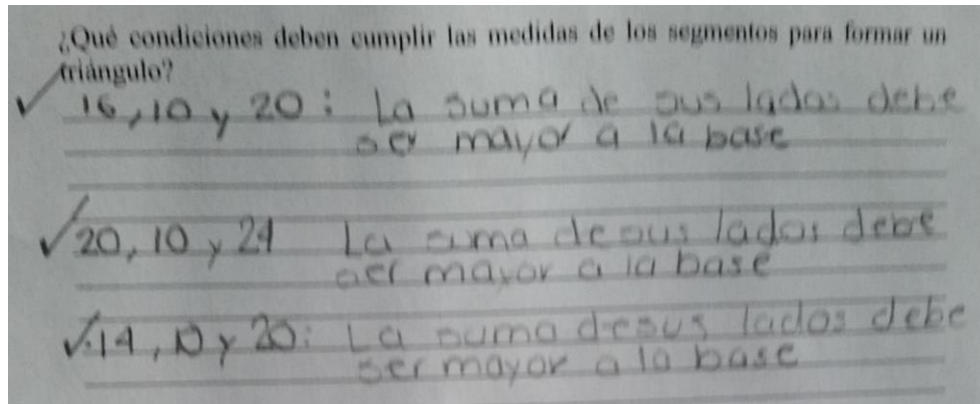 ¿Qué condiciones deben cumplir las medidas de los segmentos para formar un
triángulo?
16, 10 y 20: La suma de sus lados debe
ser mayor a la base
20, 10 y 24 La suma de sus lados debe
ser mayor a la base
14, 10 y 20: La suma de sus lados debe
ser mayor a la base